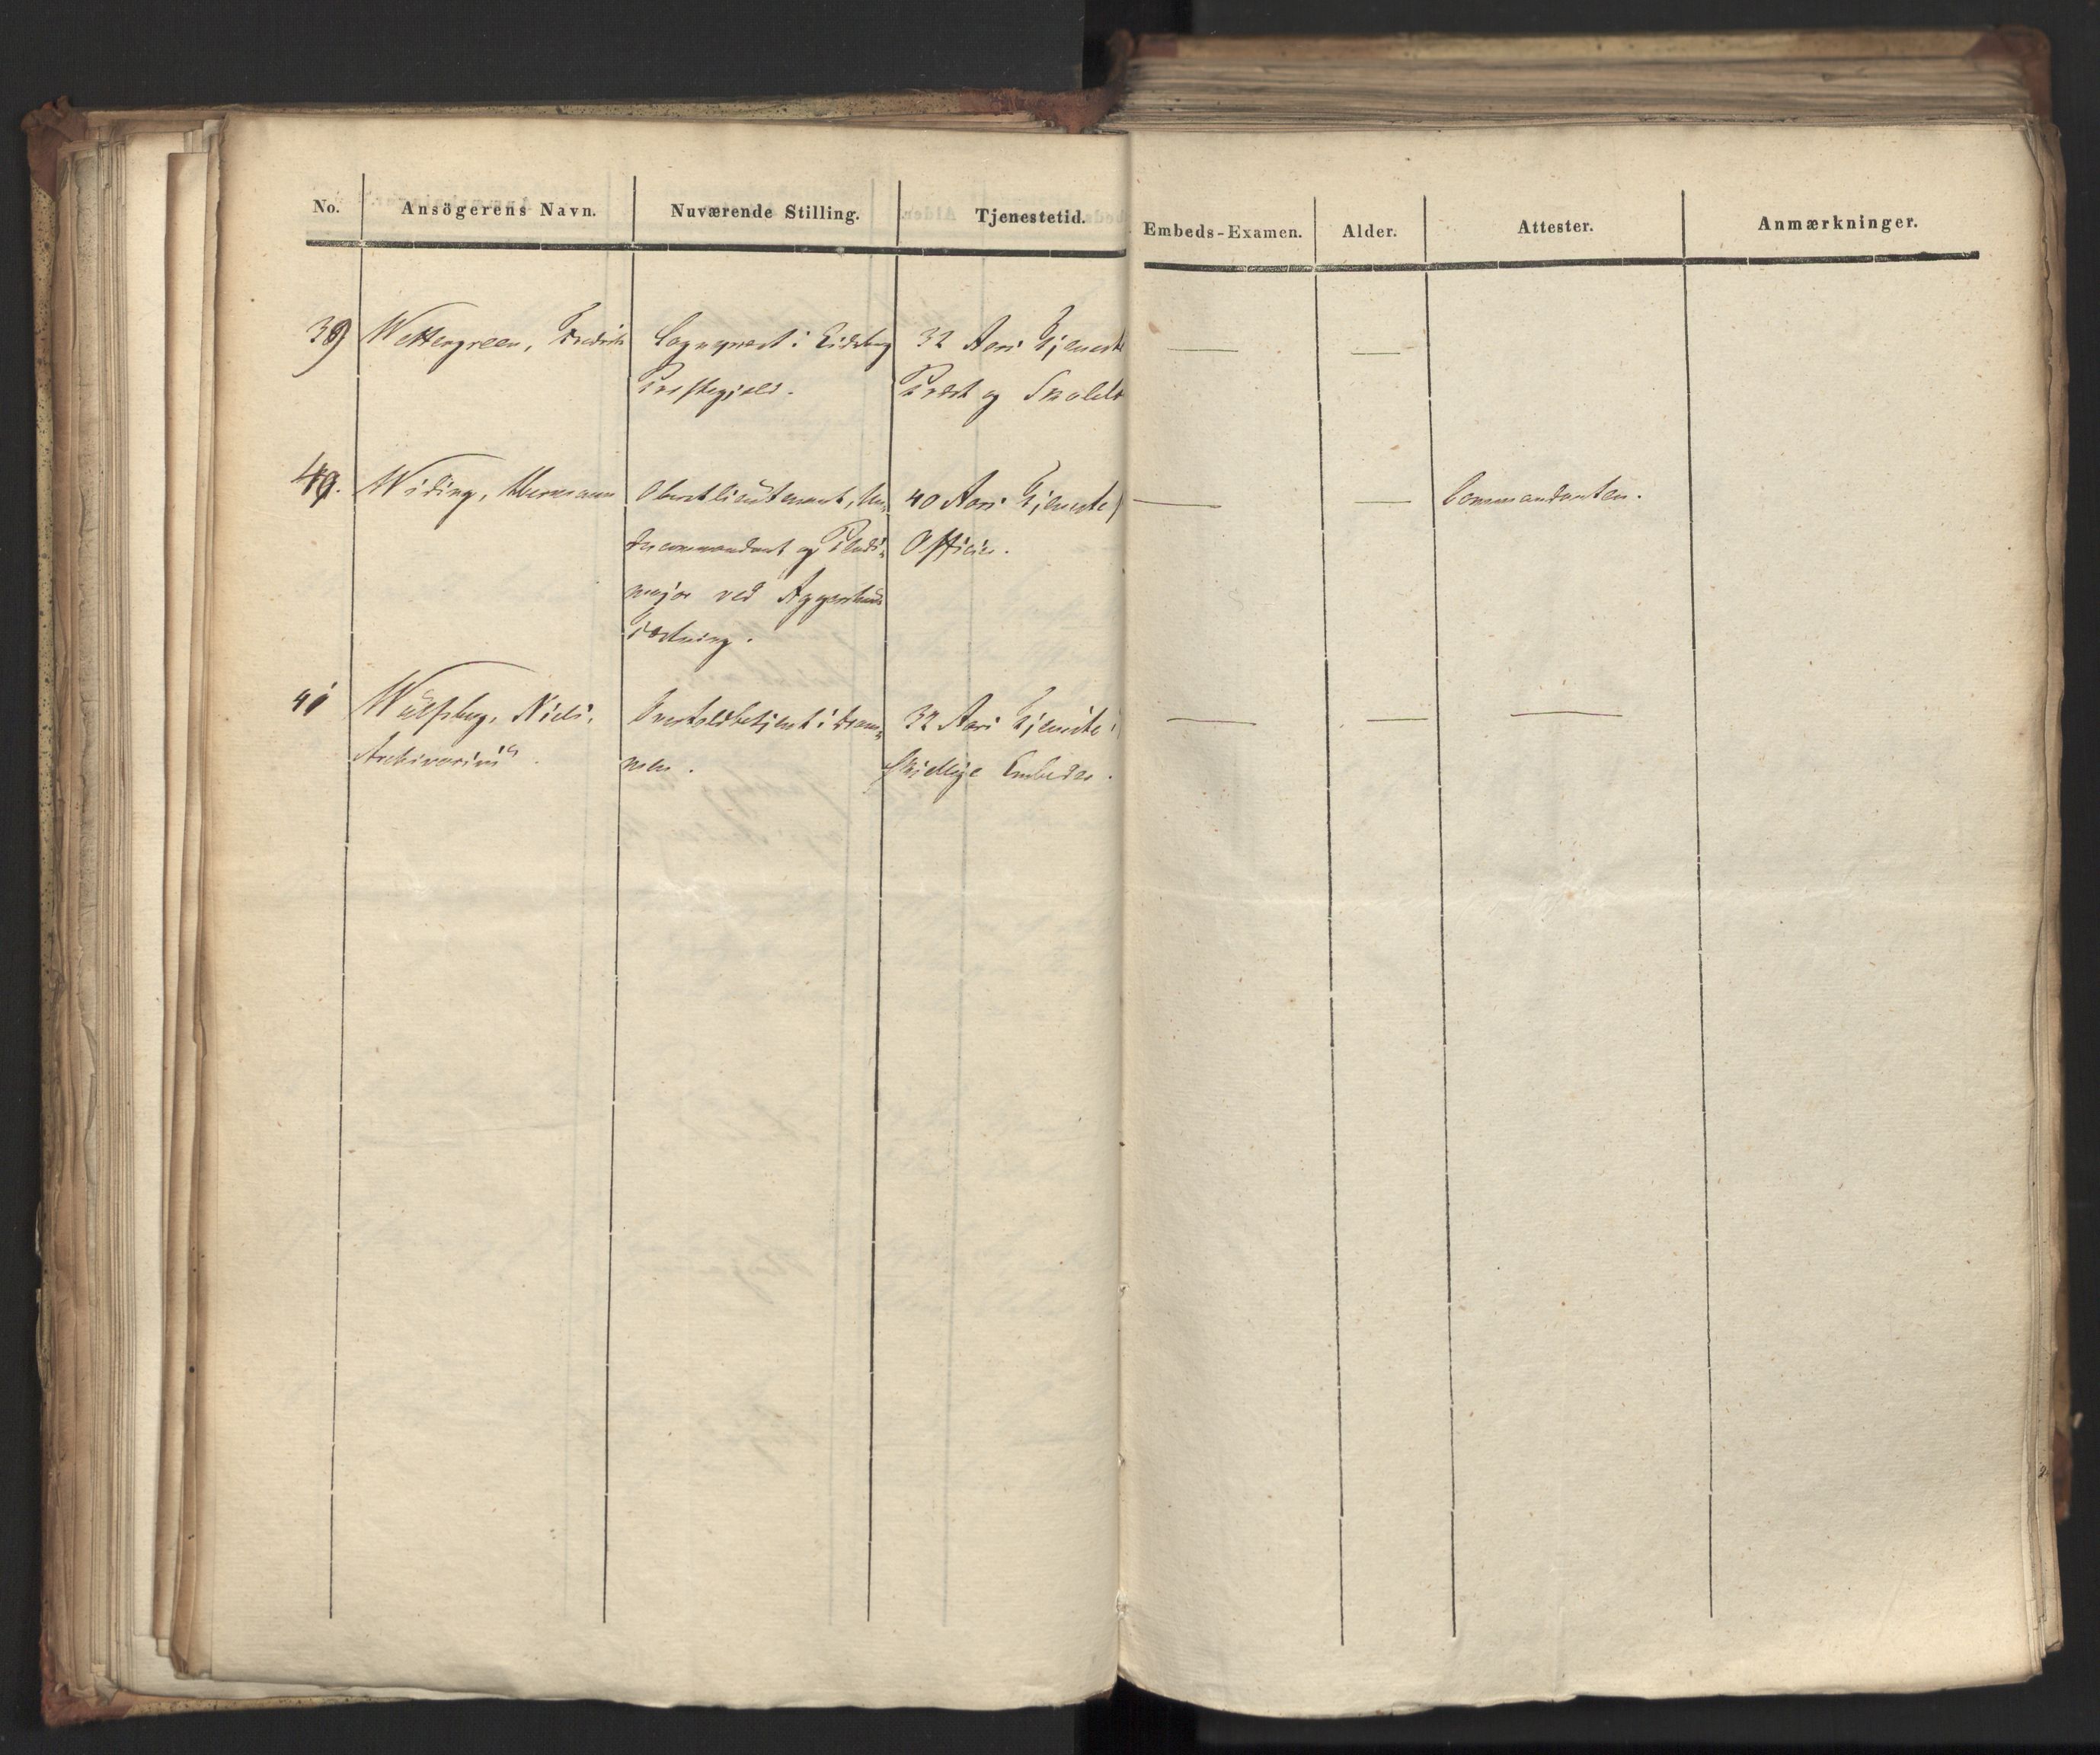 No. Ansögerens Navn. Nuværende Stilling. Tjenestetid. Embeds-Examen. Alder. Attester. Anmærkninger.
39) Wettergreen, Fredrik Sognepræst i Eidsberg 32 Aars Tjeneste
Præstegjeld. Præst og
40. Widing, Hermann Oberstlieutenant, Un- 40 Aars Tjeneste Commandanten.
dercommandant og Plads- Officier.
major ved Aggershuus
Fæstning.
41 Wulfsberg, Niels, i Dram- 32 Aars Tjeneste i
Archivarius. men. skiellige Embeder.